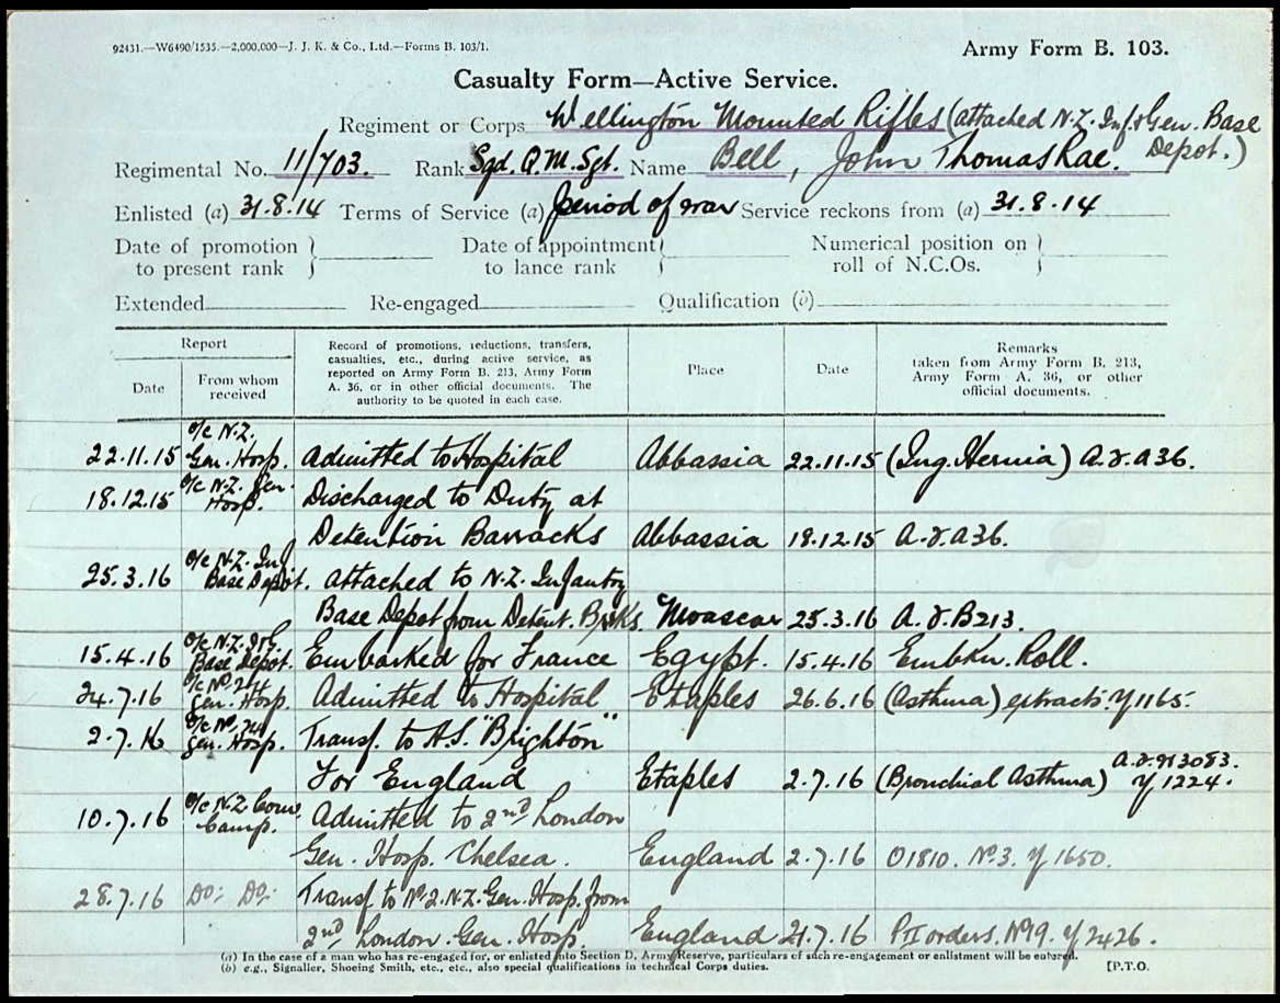 92431.—W6490/1535.—2,000,000—J. J. K. & Co., Ltd.—Forms B. 103/1.
Army Form B. 103.
Casualty Form—Active Service.
Regiment or Corps Wellington Mounted Rifles (attached N.Z. Inf. & Gen. Base Depot.)
Regimental No. 11/703. Rank Sqd. Q.M. Sgt. Name Bell, John Thomas Rae.
Enlisted (a) 31.8.14 Terms of Service (a) period of war Service reckons from (a) 31.8.14
Date of promotion to present rank Date of appointment to lance rank Numerical position on roll of N.C.Os.
Extended Re-engaged Qualification (b)
Report
Date
From whom received
Record of promotions, reductions, transfers,
casualties, etc., during active service, as
reported on Army Form B. 213, Army Form
A. 36, or in other official documents. The
authority to be quoted in each case.
Place
Date
Remarks
taken from Army Form B. 213,
Army Form A. 36, or other
official documents.
O/c N.Z.
22.11.15 Gen. Hosp. Admitted to Hospital Abbassia 22.11.15 (Ing. Hernia) A.F. A36.
18.12.15 O/c N.Z. Gen. Hosp. Discharged to Duty at
Detention Barracks Abbassia 18.12.15 A.F. A36.
25.3.16 O/c N.Z. Inf. Base Depot. attached to N.Z. Infantry
Base Depot from Detent. Brks. Moascar 25.3.16 A.F. B213.
15.4.16 O/c N.Z. Base Depot. Embarked for France Egypt. 15.4.16 Embkn. Roll.
24.7.16 O/c No. 24 Gen. Hosp. Admitted to Hospital Etaples 26.6.16 (Asthma) extracts. Y1165.
2.7.16 O/c No. 24 Gen. Hosp. Transf. to H.S. "Brighton"
For England Etaples 2.7.16 (Bronchial Asthma) A.F. 9B3083. Y1224.
10.7.16 O/c N.Z. Conv. Camp. Admitted to 2nd London
Gen. Hosp. Chelsea. England 2.7.16 O1810. No. 3. Y 1650.
28.7.16 Do: Do: Transf. to No. 2. N.Z. Gen. Hosp. from
2nd London. Gen. Hosp. England 21.7.16 Pt II orders. No 19. Y 2426.
(a) In the case of a man who has re-engaged for, or enlisted into Section D, Army Reserve, particulars of such re-engagement or enlistment will be entered.
(b) e.g., Signaller, Shoeing Smith, etc., etc., also special qualifications in technical Corps duties.
[P.T.O.